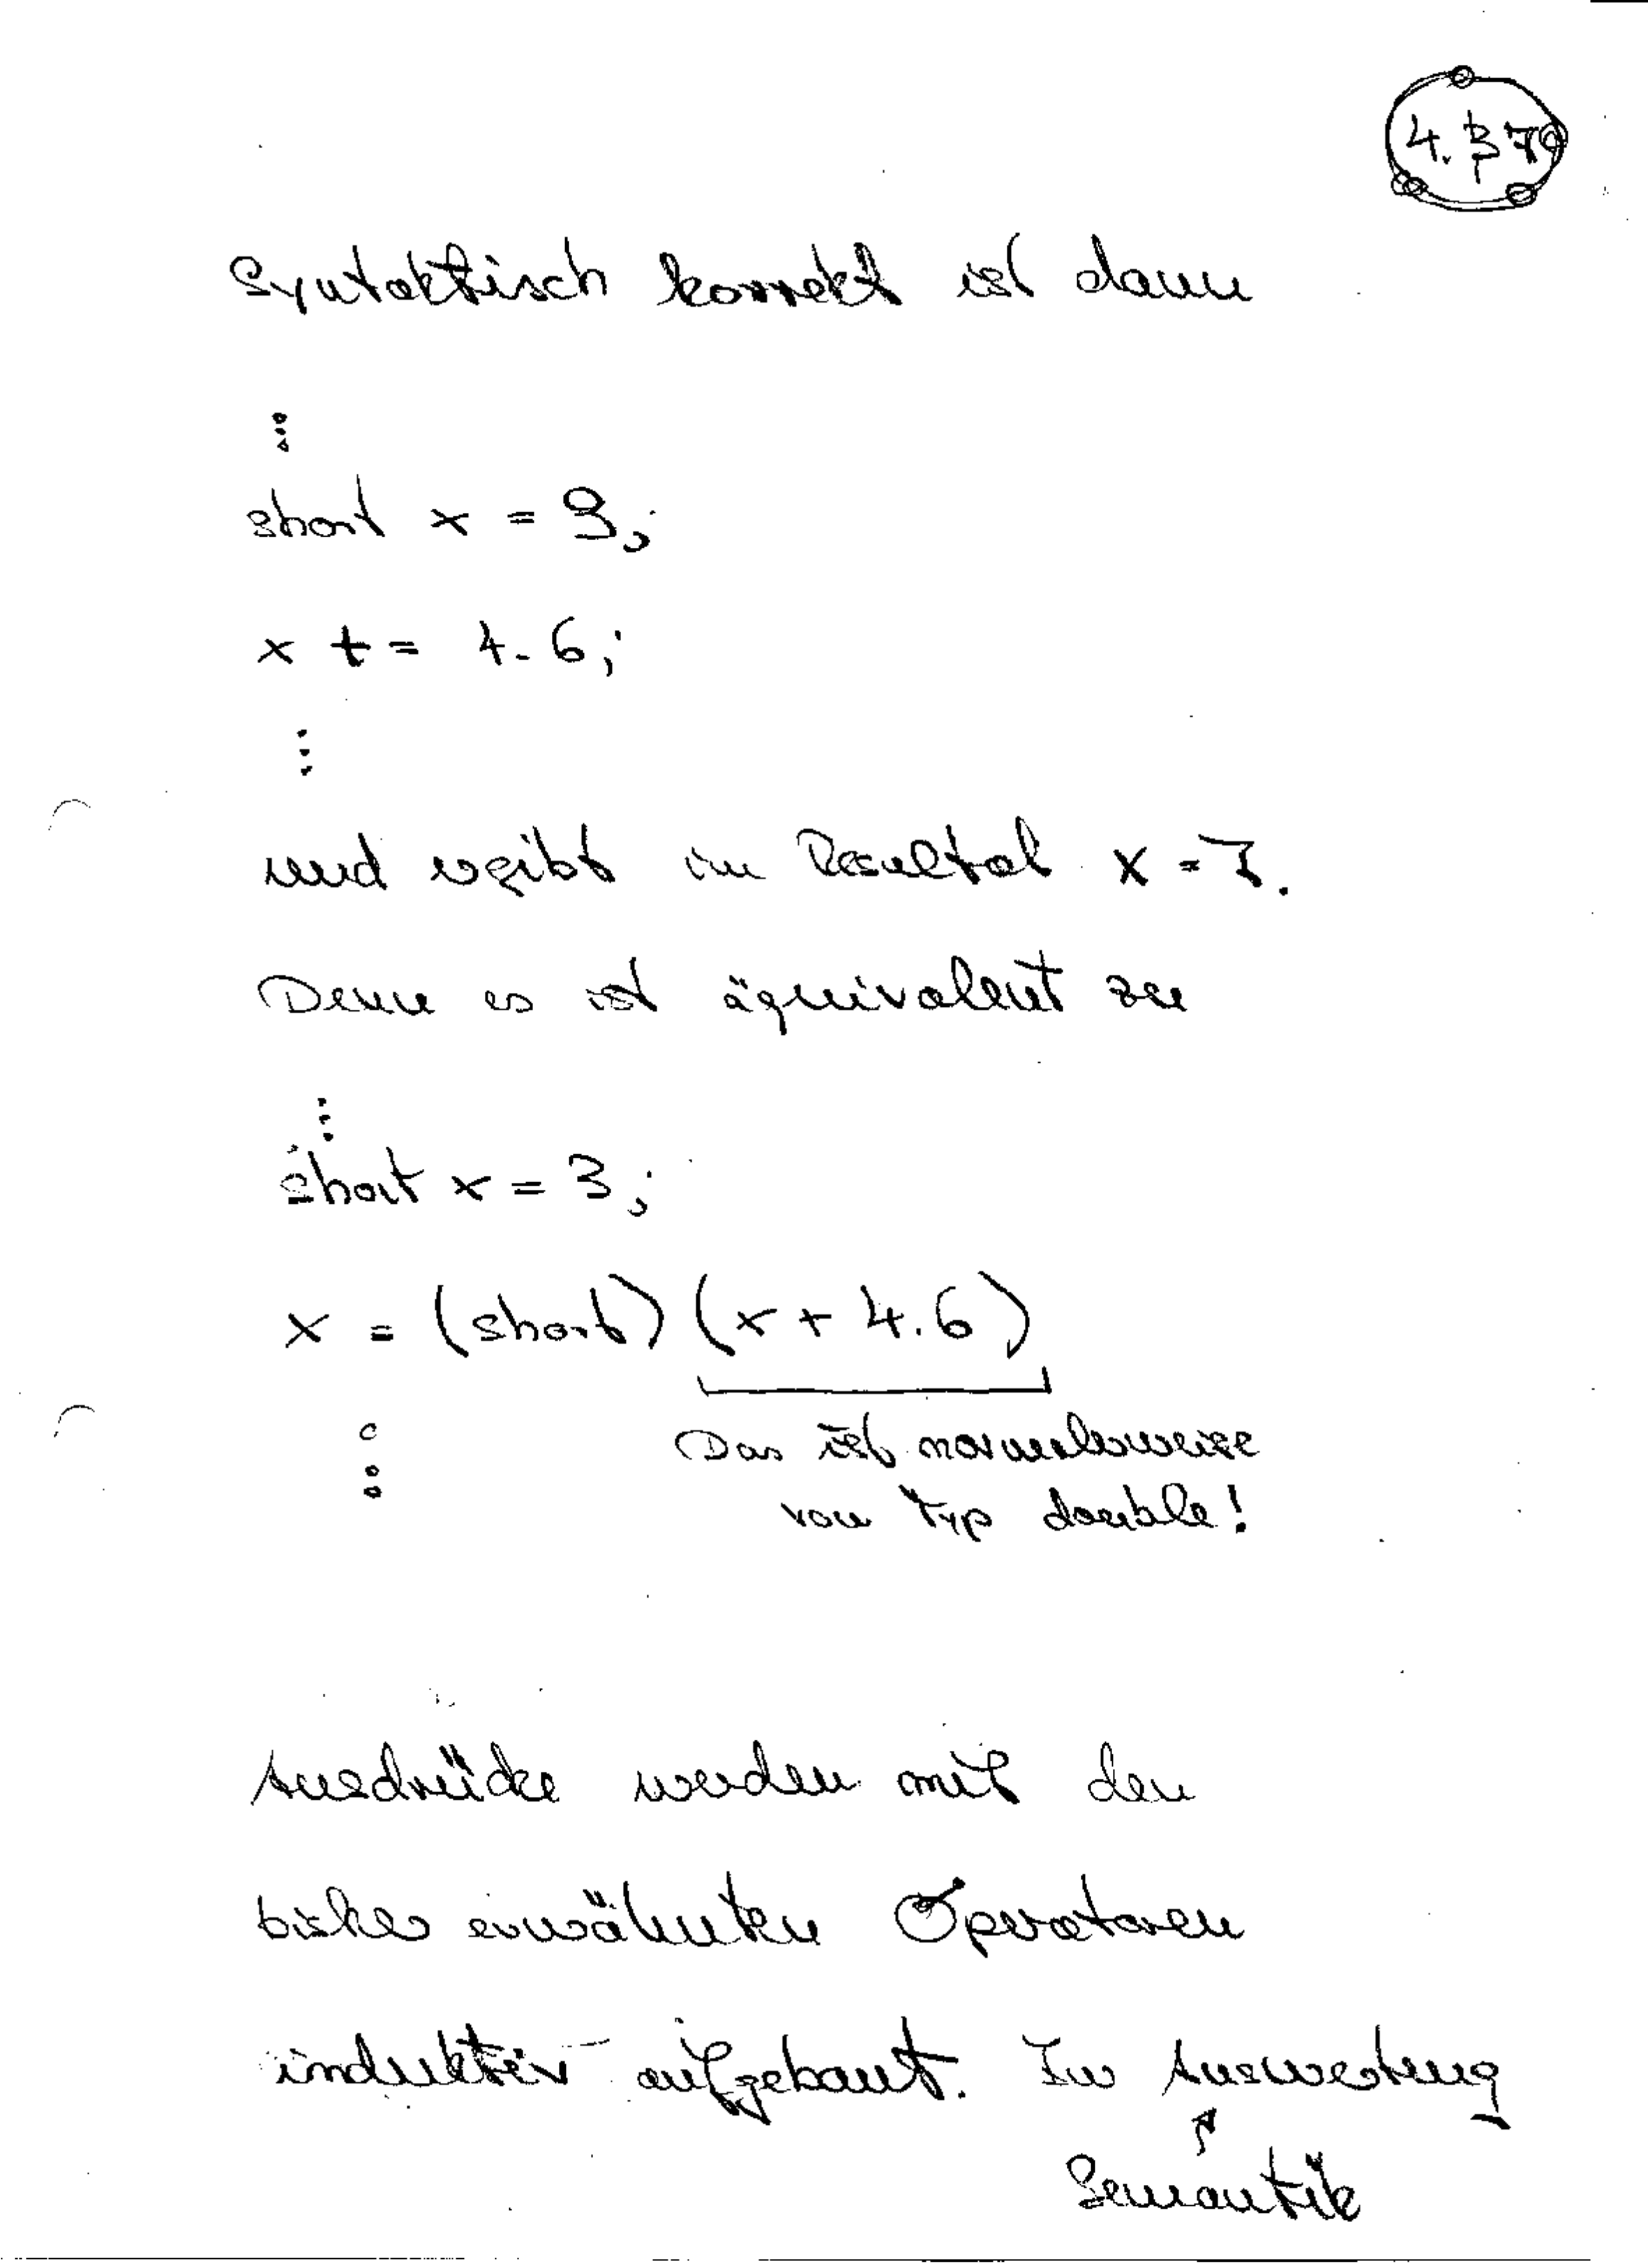 4.37
Syntaktisch korrekt ist dann
⋮
short x = 3;
x += 4.6;
⋮
und ergibt im Resultat x = 7.
Denn es ist äquivalent zu
⋮
short x = 3;
x = (short) (x + 4.6)
⋮
Das ist normalerweise
vom Typ double!
Ausdrücke werden mit den
bisher erwähnten Operatoren
induktiv aufgebaut. Zur Auswertung
↑
Semantik